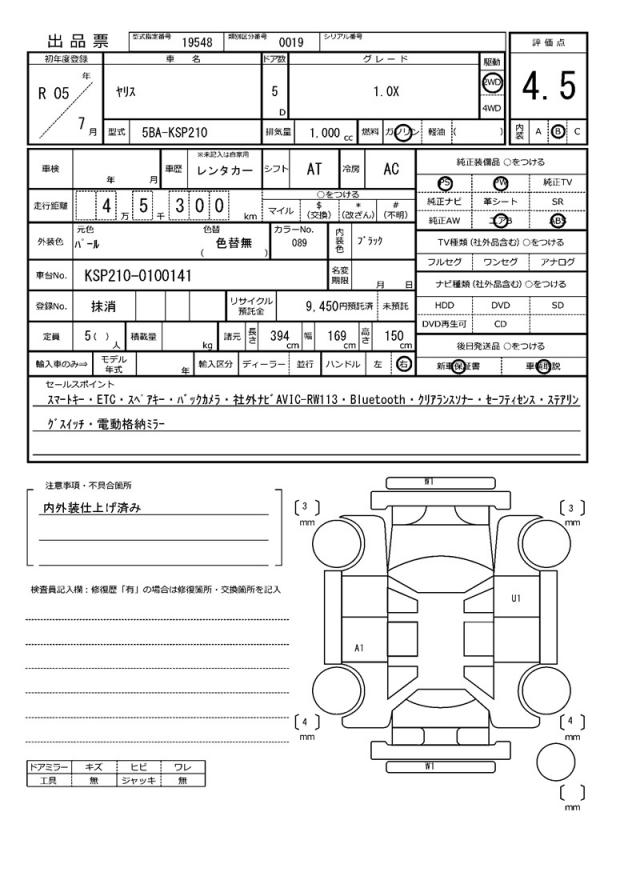 出品票 型式指定番号 19548 類別区分番号 0019 シリアル番号
評価点
4.5
内装 A B C
初年度登録 車名 ドア数 グレード 駆動
R 05 年 7 月 ヤリス 5 D 1.0X 2WD 4WD
型式 5BA-KSP210 排気量 1.000 cc 燃料 ガソリン 軽油 ( )
車検 年 月 車歴 ※未記入は自家用 レンタカー シフト AT 冷房 AC
走行距離 4 万 5 千 3 0 0 km ○をつける マイル $ (交換) * (改ざん) # (不明)
外装色 元色 パール 色替 ( 色替無 ) カラーNo. 089 内装色 ブラック
車台No. KSP210-0100141 名変期限 月 日
登録No. 抹消 リサイクル預託金 9,450円預託済 未預託
定員 5( ) 人 積載量 kg 諸元 長さ 394 cm 幅 169 cm 高さ 150 cm
輸入車のみ⇒ モデル年式 年 輸入区分 ディーラー 並行 ハンドル 左 右
純正装備品 ○をつける
PS PW 純正TV
純正ナビ 革シート SR
純正AW エアB ABS
TV種類 (社外品含む) ○をつける
フルセグ ワンセグ アナログ
ナビ種類 (社外品含む) ○をつける
HDD DVD SD
DVD再生可 CD
後日発送品 ○をつける
新車保証書 車輌取説
セールスポイント
スマートキー・ETC・スペアキー・バックカメラ・社外ナビAVIC-RW113・Bluetooth・クリアランスソナー・セーフティセンス・ステアリン
グスイッチ・電動格納ミラー
注意事項・不具合箇所
内外装仕上げ済み
検査員記入欄：修復歴「有」の場合は修復箇所・交換箇所を記入
ドアミラー キズ ヒビ ワレ
工具 無 ジャッキ 無
W1
[ 3 ] mm
[ 3 ] mm
U1
A1
[ 4 ] mm
[ 4 ] mm
W1
[ ] mm